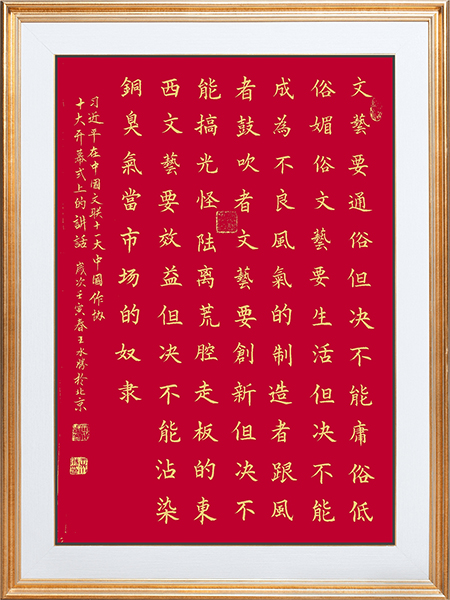 文藝要通俗但决不能庸俗低
俗媚俗文藝要生活但决不能
成為不良風氣的制造者跟風
者鼓吹者文藝要創新但决不
能搞光怪陆离荒腔走板的東
西文藝要效益但决不能沾染
銅臭氣當市场的奴隶
习近平在中國文联十一大中國作协
十大开幕式上的讲話 歲次壬寅春王於北京